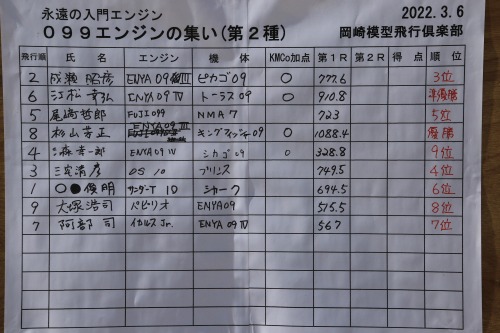 永遠の入門エンジン 2022.3.6
099エンジンの集い(第2種) 岡崎模型飛行倶楽部
飛行順 氏名 エンジン 機体 KMCo加点 第1R 第2R 得点 順位
2 成瀬 昭彦 ENYA 09 III ピカゴ09 ○ 777.6 3位
6 江松 幸弘 ENYA 09 IV トーラス09 ○ 910.8 準優勝
5 尾崎哲郎 FUJI 099 NMA 7 723 5位
8 杉山 芳正 ENYA 09 III キングマッキー09 ○ 1088.4 優勝
4 森 幸一郎 ENYA 09 IV シカゴ09 ○ 328.8 9位
3 清彦 OS 10 プリンス 749.5 4位
1 ○●俊明 サンダーT 10 シャーク 694.5 6位
9 大塚浩司 パピリオ ENYA09 575.5 8位
7 阿部 司 イカルス Jr. ENYA 09 IV 567 7位